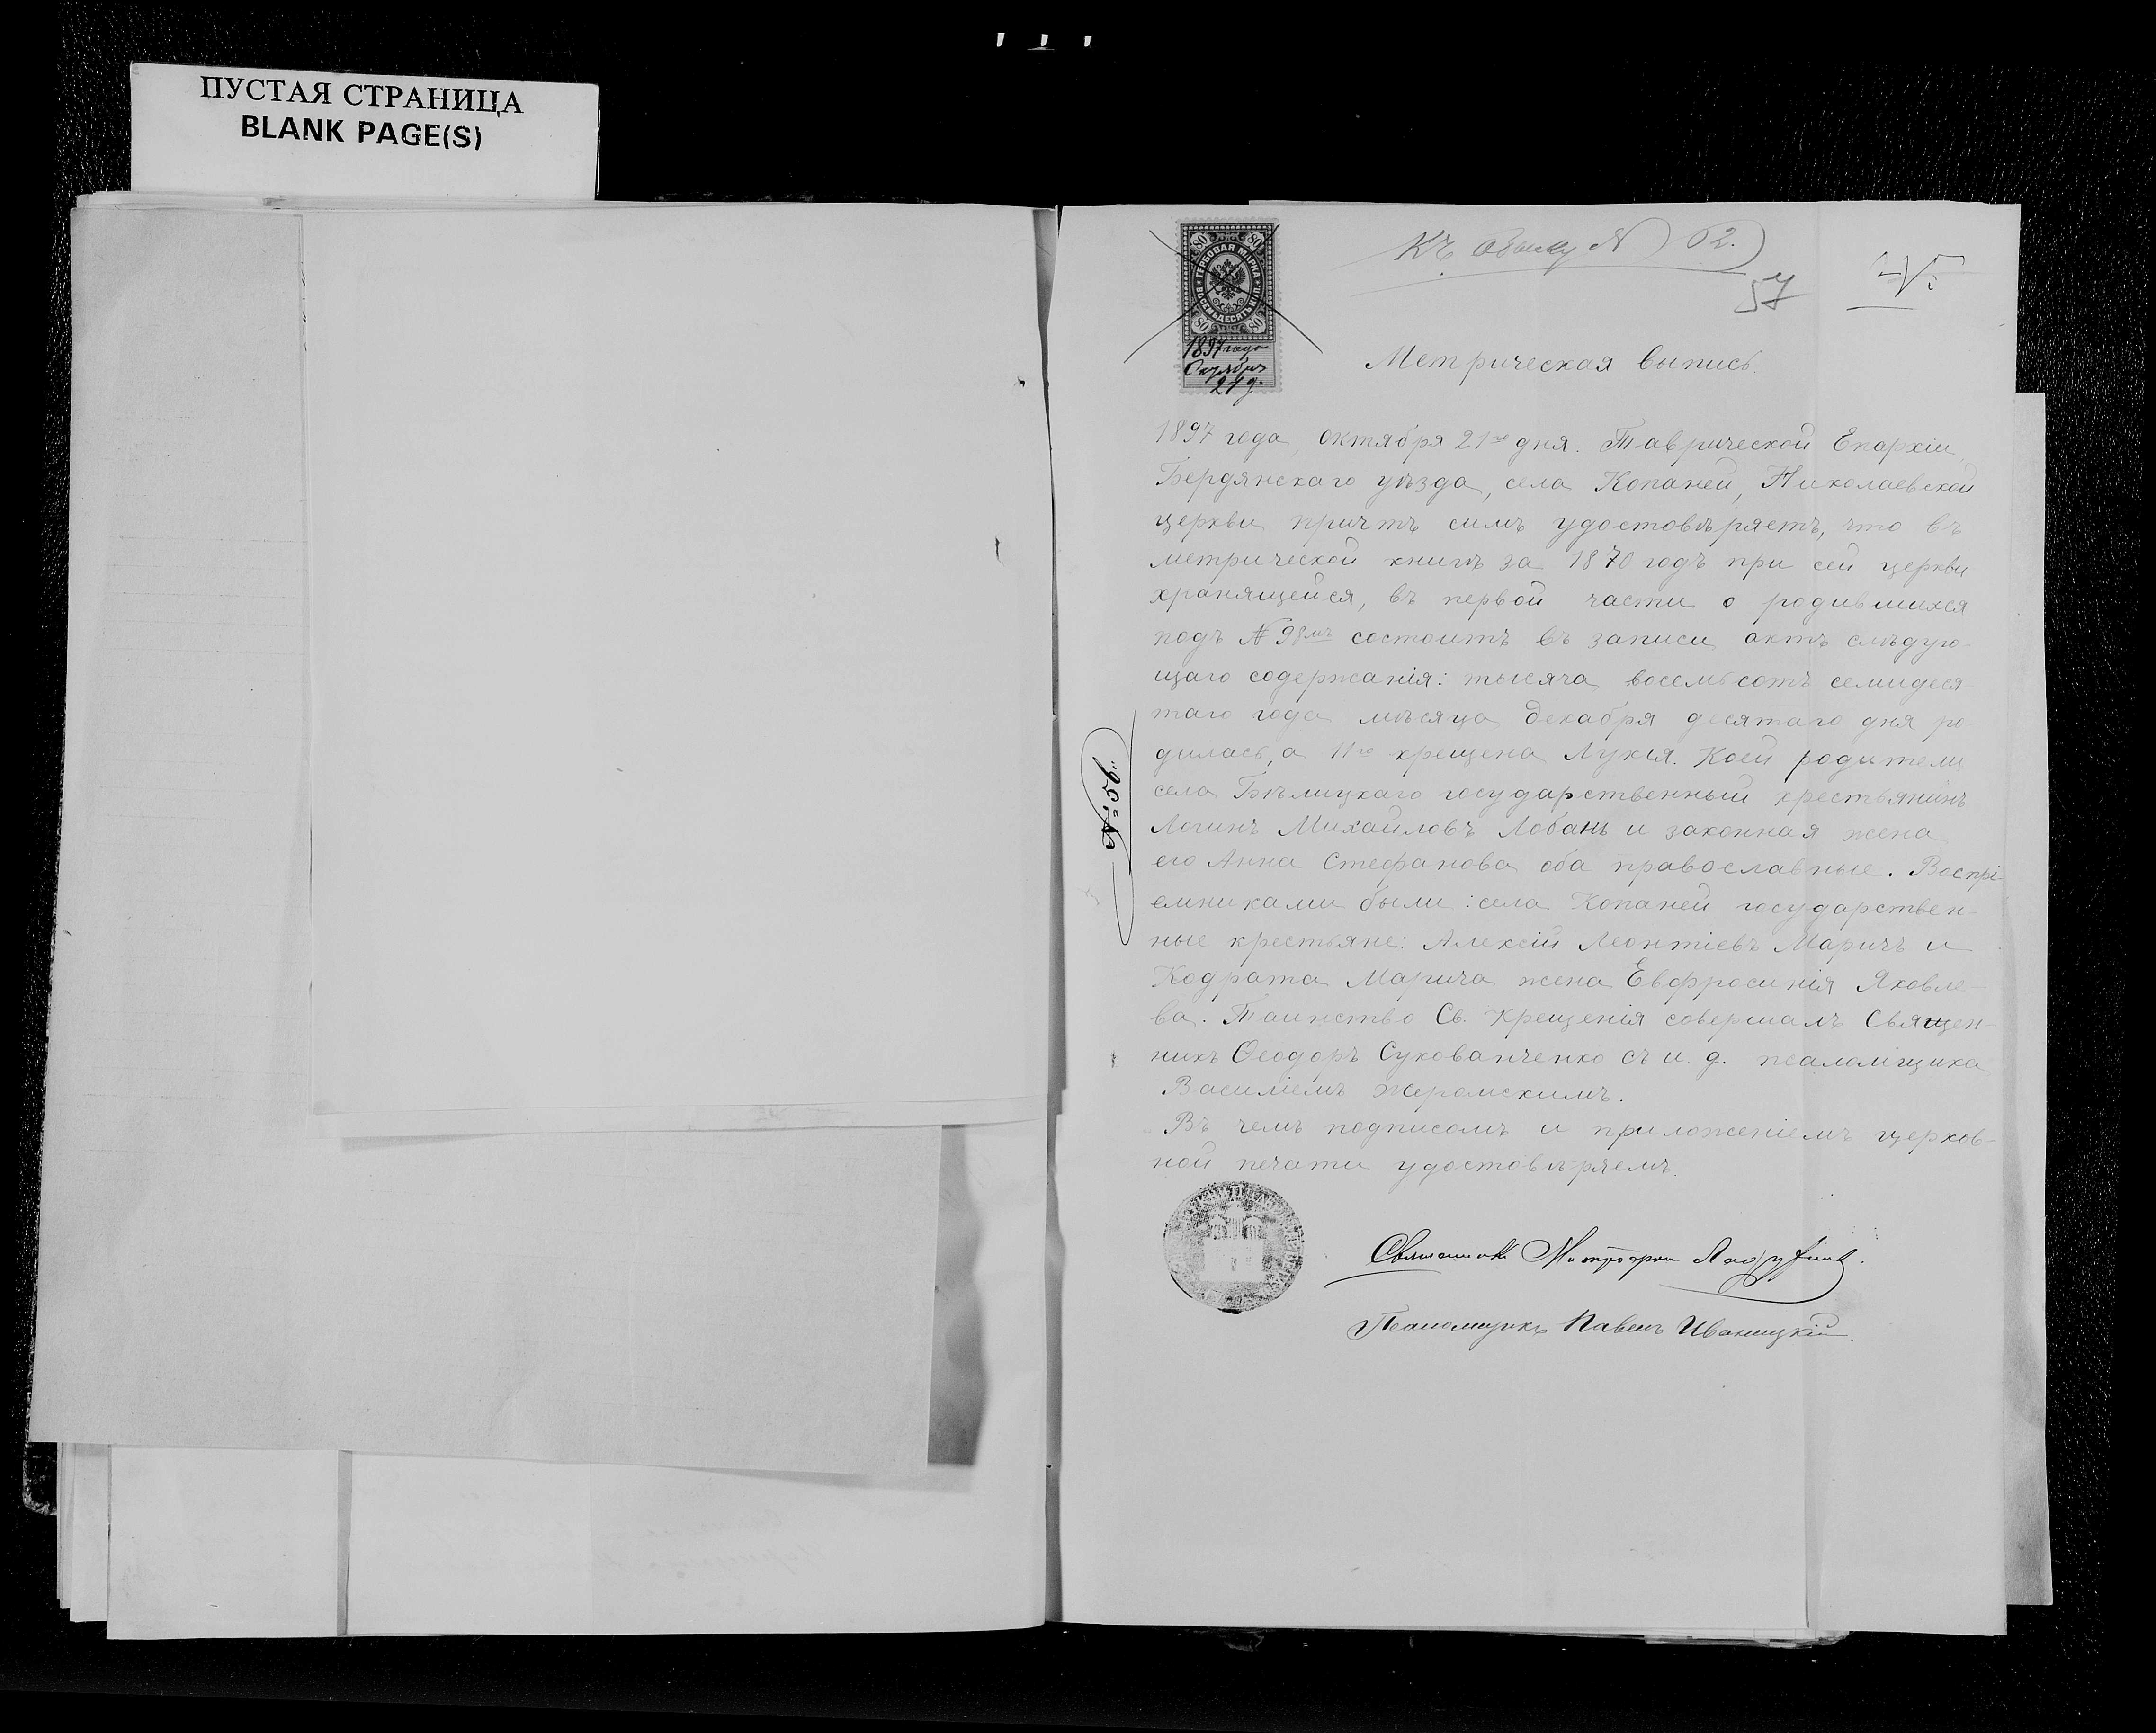 ПУСТАЯ СТРАНИЦА
BLANK PAGE(S)
Къ обыску № 62.
57
80 80
ГЕРБОВАЯ МАРКА
ВОСЕМЬДЕСЯТЪ КОП.
80 80
1897 года
Октября
21 д.
Метрическая выпись.
1897 года, октября 21го дня. Таврической Епархіи,
Бердянскаго уѣзда, села Копаней, Николаевской
церкви причтъ симъ удостовѣряетъ, что въ
метрической книгѣ за 1870 годъ при сей церкви
хранящейся, въ первой части о родившихся
подъ № 98мъ состоитъ въ записи актъ слѣдую-
щаго содержанія: тысяча восемьсотъ семидеся
таго года мѣсяца декабря десятаго дня ро-
дилась, а 11го крещена Лукія. Коей родители
села Бѣлицкаго государственный крестьянинъ
Логинъ Михайловъ Лобань и законная жена
его Анна Стефанова оба православные. Воспрі-
емниками были: села Копаней государствен-
ные крестьяне: Алексій Леонтіевъ Маричъ и
Кодрата Марича жена Евфросинія Яковле-
ва. Таинство Св. Крещенія совершалъ Священ-
никъ Ѳеодоръ Сукованченко съ и. д. псаломщика
Василіемъ Жеромскимъ.
Въ чемъ подписомъ и приложеніемъ церков-
ной печати удостовѣряемъ.
№ 56
Священникъ Митрофанъ
Псаломщикъ Павелъ Иваницкій.